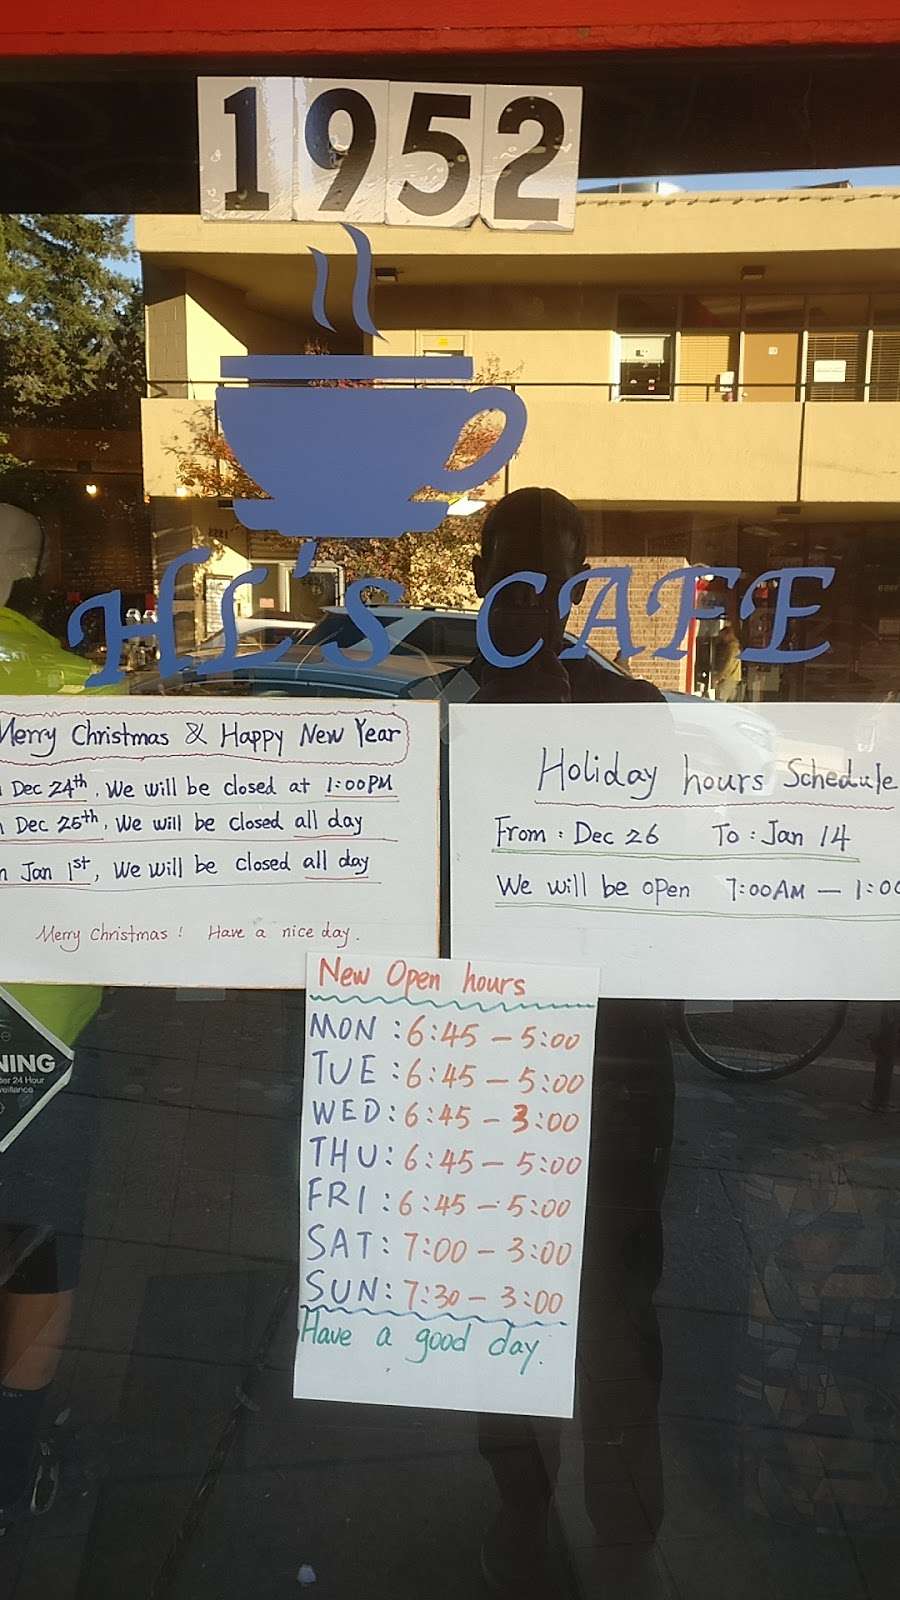 1952
HL'S CAFE
Merry Christmas & Happy New Year
Dec 24th, We will be closed at 1:00PM
Dec 25th, We will be closed all day
Jan 1st, We will be closed all day
Merry Christmas! Have a nice day.
Holiday hours Schedule
From: Dec 26 To: Jan 14
We will be open 7:00AM — 1:00
New Open hours
MON: 6:45 – 5:00
TUE: 6:45 – 5:00
WED: 6:45 – 3:00
THU: 6:45 – 5:00
FRI: 6:45 – 5:00
SAT: 7:00 – 3:00
SUN: 7:30 – 3:00
Have a good day.
24 Hour